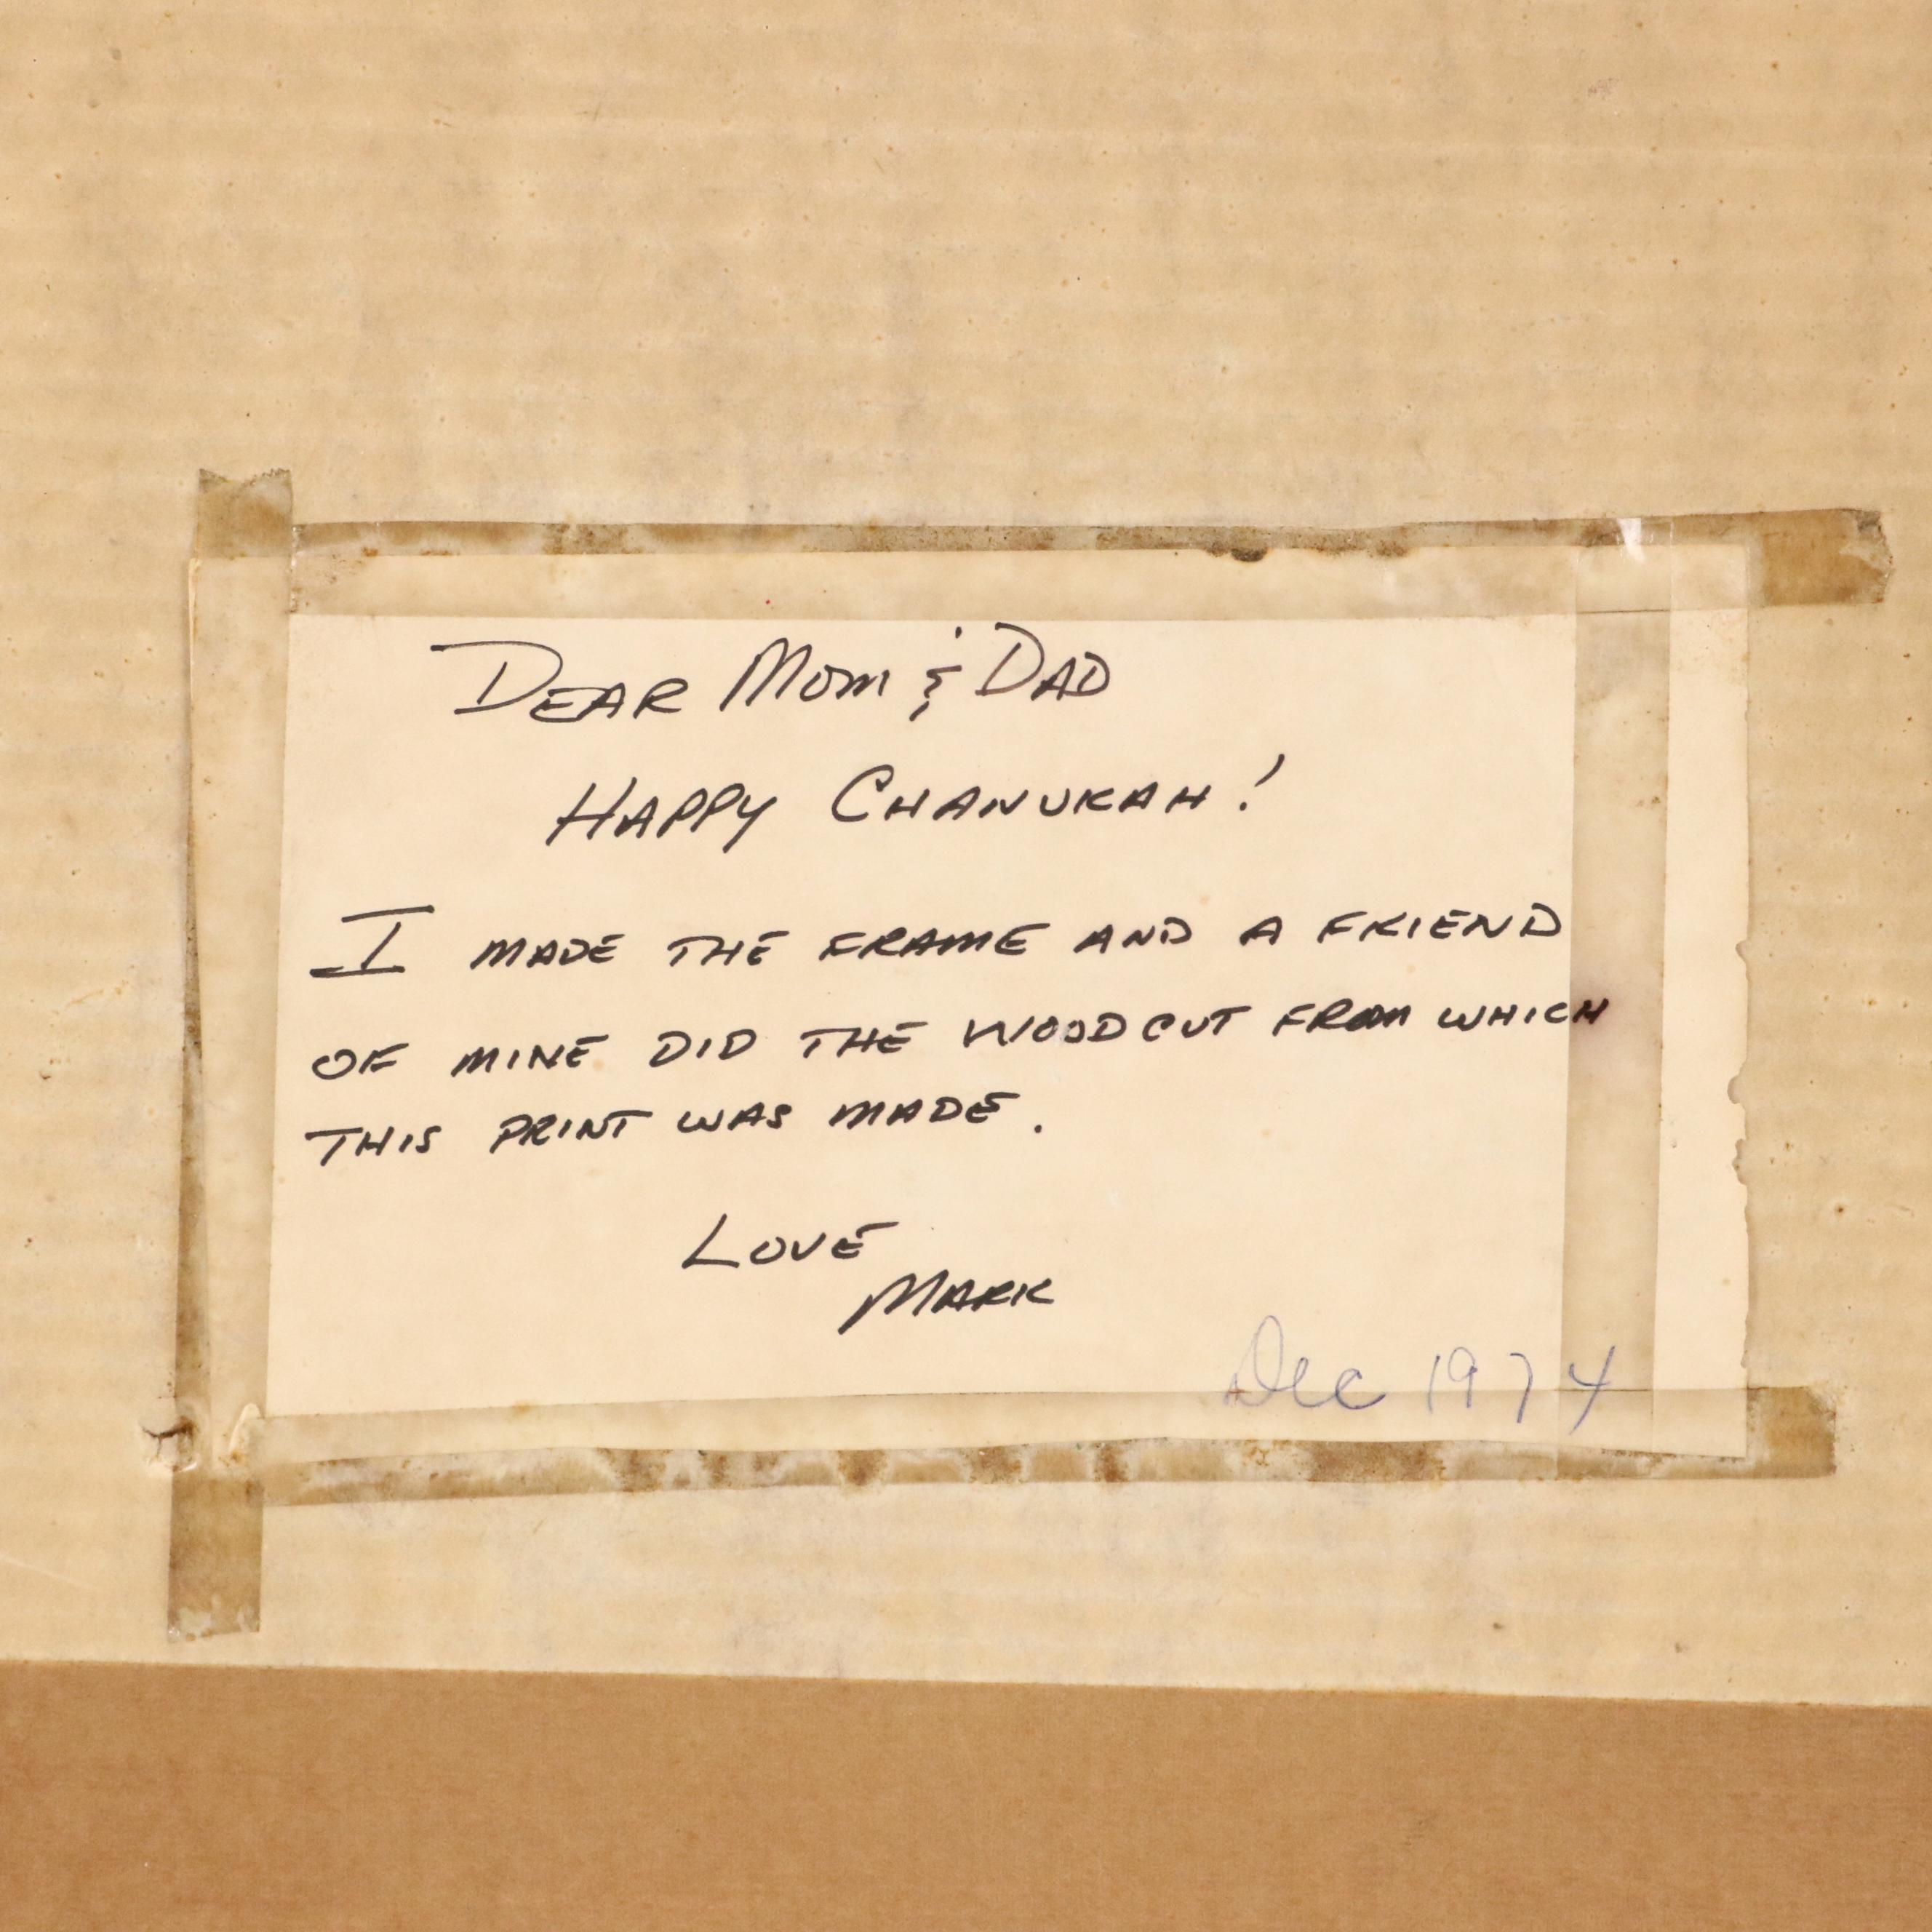 DEAR MOM & DAD
HAPPY CHANUKAH!
I MADE THE FRAME AND A FRIEND
OF MINE DID THE WOODCUT FROM WHICH
THIS PRINT WAS MADE.
LOVE
MARK
Dec 1974